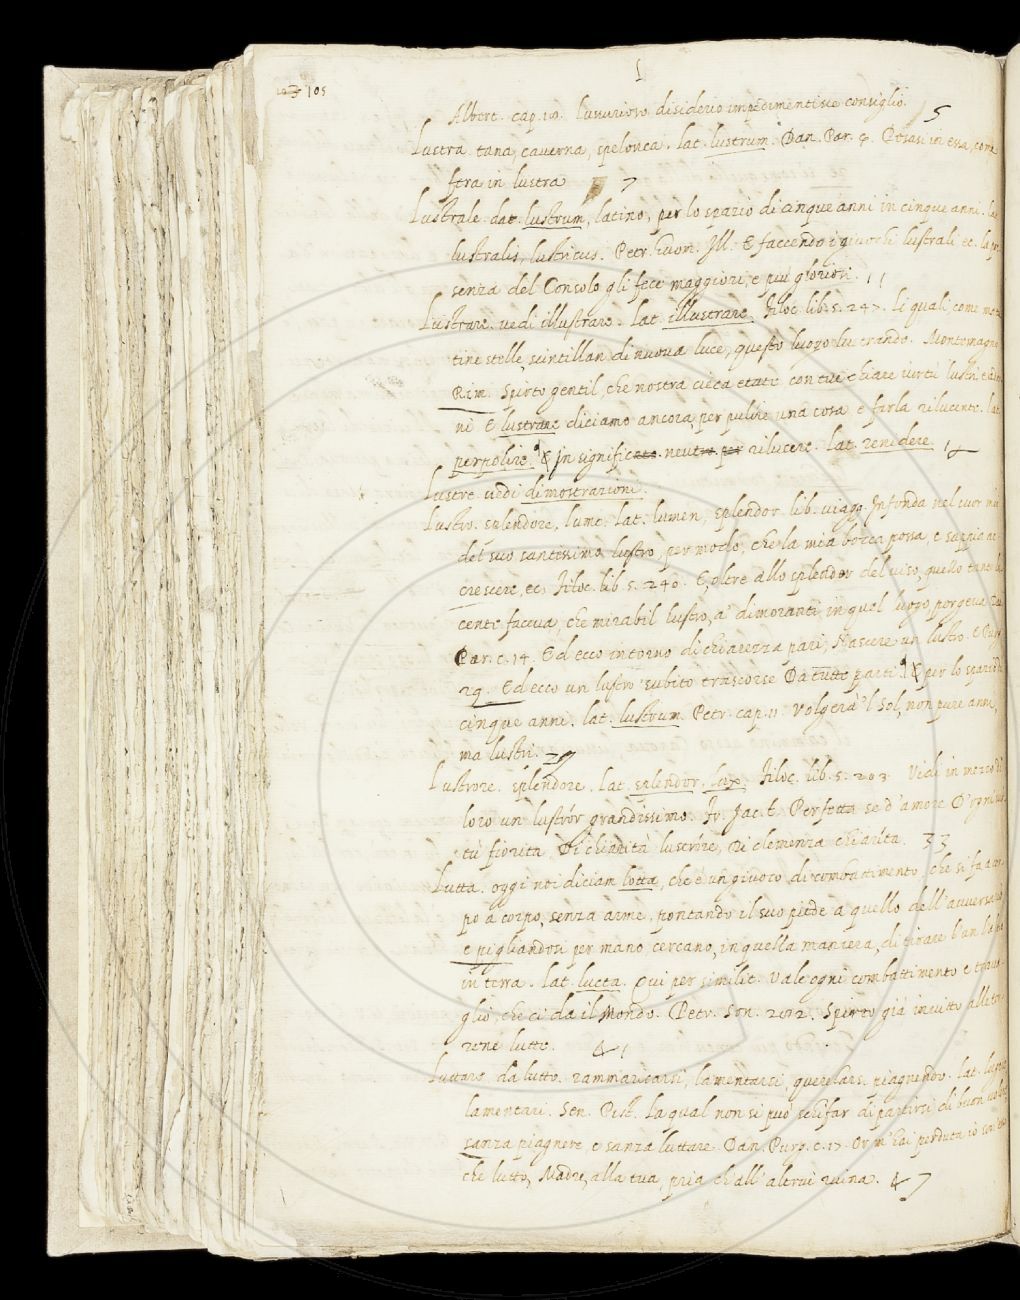 L
103 105
Albert. cap. 10. Lussurioso disiderio impedimentisce consiglio. 5
Lustra. tana, caverna, spelonca. lat. lustrum. Dan. Par. 4. Posasi in essa, come
fera in lustra 7
Lustrale. dat. lustrum, latino, per lo spazio di cinque anni in cinque anni. lat.
lustralis, lustricus. Petr. huom. Ill. E faccendo i giuochi lustrali ec. la pre
senza del Consolo gli fece maggiori, e più gloriosi. 11
Lustrare. vedi illustrare. lat. illustrare. Filoc. lib. 5. 247. Li quali, come mat
tine stelle, scintillan di nuova luce, questo luogo lustrando. Montemagno
Rim. Spirto gentil, che nostra cieca etate con tue chiare virtù lustri e ador
ni E lustrare diciamo ancora, per pulire una cosa e farla rilucente. lat.
perpolire. & in significato neutro per rilucere. lat. renidere. 14
Lustre. vedi dimostrazioni.
Lustro. splendore, lume. lat. lumen, splendor. lib. viagg. Infonda nel cuor mio
del suo santissimo lustro, per modo, che la mia bocca possa, e sappia ac-
crescere, ec. Filoc. lib. 5. 240. E, oltre allo splendor del viso, quello tanto lu
cente faceva, che mirabil lustro, a' dimoranti in quel luogo porgeva. Dan.
Par. c. 14. Ed ecco intorno di chiarezza pari, Nascere un lustro. E Purg.
29. Ed ecco un lustro subito trascorse Da tutte parti. & per lo spazio di
cinque anni. lat. lustrum. Petr. cap. 11 Volgerà 'l Sol, non pure anni,
ma lustri. 29
Lustrore. splendore. lat. splendor, lux. Filoc. lib. 5. 203. Vedi in mezzo di
loro un lustrór grandissimo. Fr. Jac. t. Perfetta se d'amore D'ogni vir
tù fiorita, Di chiarità lustróre, Di clemenza chiarita. 33
Lutta. oggi noi diciam lotta, che è un giuoco di combattimento, che si fa a cor
po a corpo, senza arme, pontando il suo piede a quello dell'avversario
e pigliandosi per mano, cercano, in quella maniera, di tirare l'un l'altro
in terra. lat. lucta. Qui per similit. vale ogni combattimento e trava
glio, che ci da il Mondo. Petr. Son. 202. Spirto già invitto alle ter
rene lutte. 41
Luttare da lutto. rammaricarsi, lamentarsi, querelars. piagnendo. lat. lugere,
lamentari. Sen. Pist. La qual non si può schifar di partirsi di buon volere
sanza piagnere e sanza luttare. Dan. Purg. c. 17. Or m'hai perduta io son essa
che lutto, Madre, alla tua, pria ch'all'altrui ruina. 47